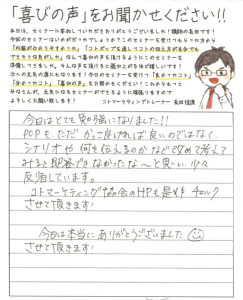 「喜びの声」をお聞かせください!!
本日は、セミナーに参加していただきありがとうございました!講師の長田です!
今回のセミナーはいかがだったでしょうか?このセミナーを受けてもらった方から
なんて喜びの声を頂けるようにこのセミナーを
準備してきました。そんな声を頂けると
次への元気の源にもなります!今日のセミナーを受けて「良かったこと」
「分かったこと」「喜びの声」をお聞かせください!これからもっと
みなさんが、元気になるセミナーができるように頑張りますので
よろしくお願い致します!
コトマーケティングトレーナー 長田
今日はとても勉強になりました!!
POPも、ただかっこ良ければ良いのではなく、
シナリオや何を伝えるのかなど改めて考えて
みると即答できなかったな〜と思い、少々
反省しています。
コトマーケティング協会のHPも是非チェック
させて頂きます!
今日は本当にありがとうございました
させて頂きます!